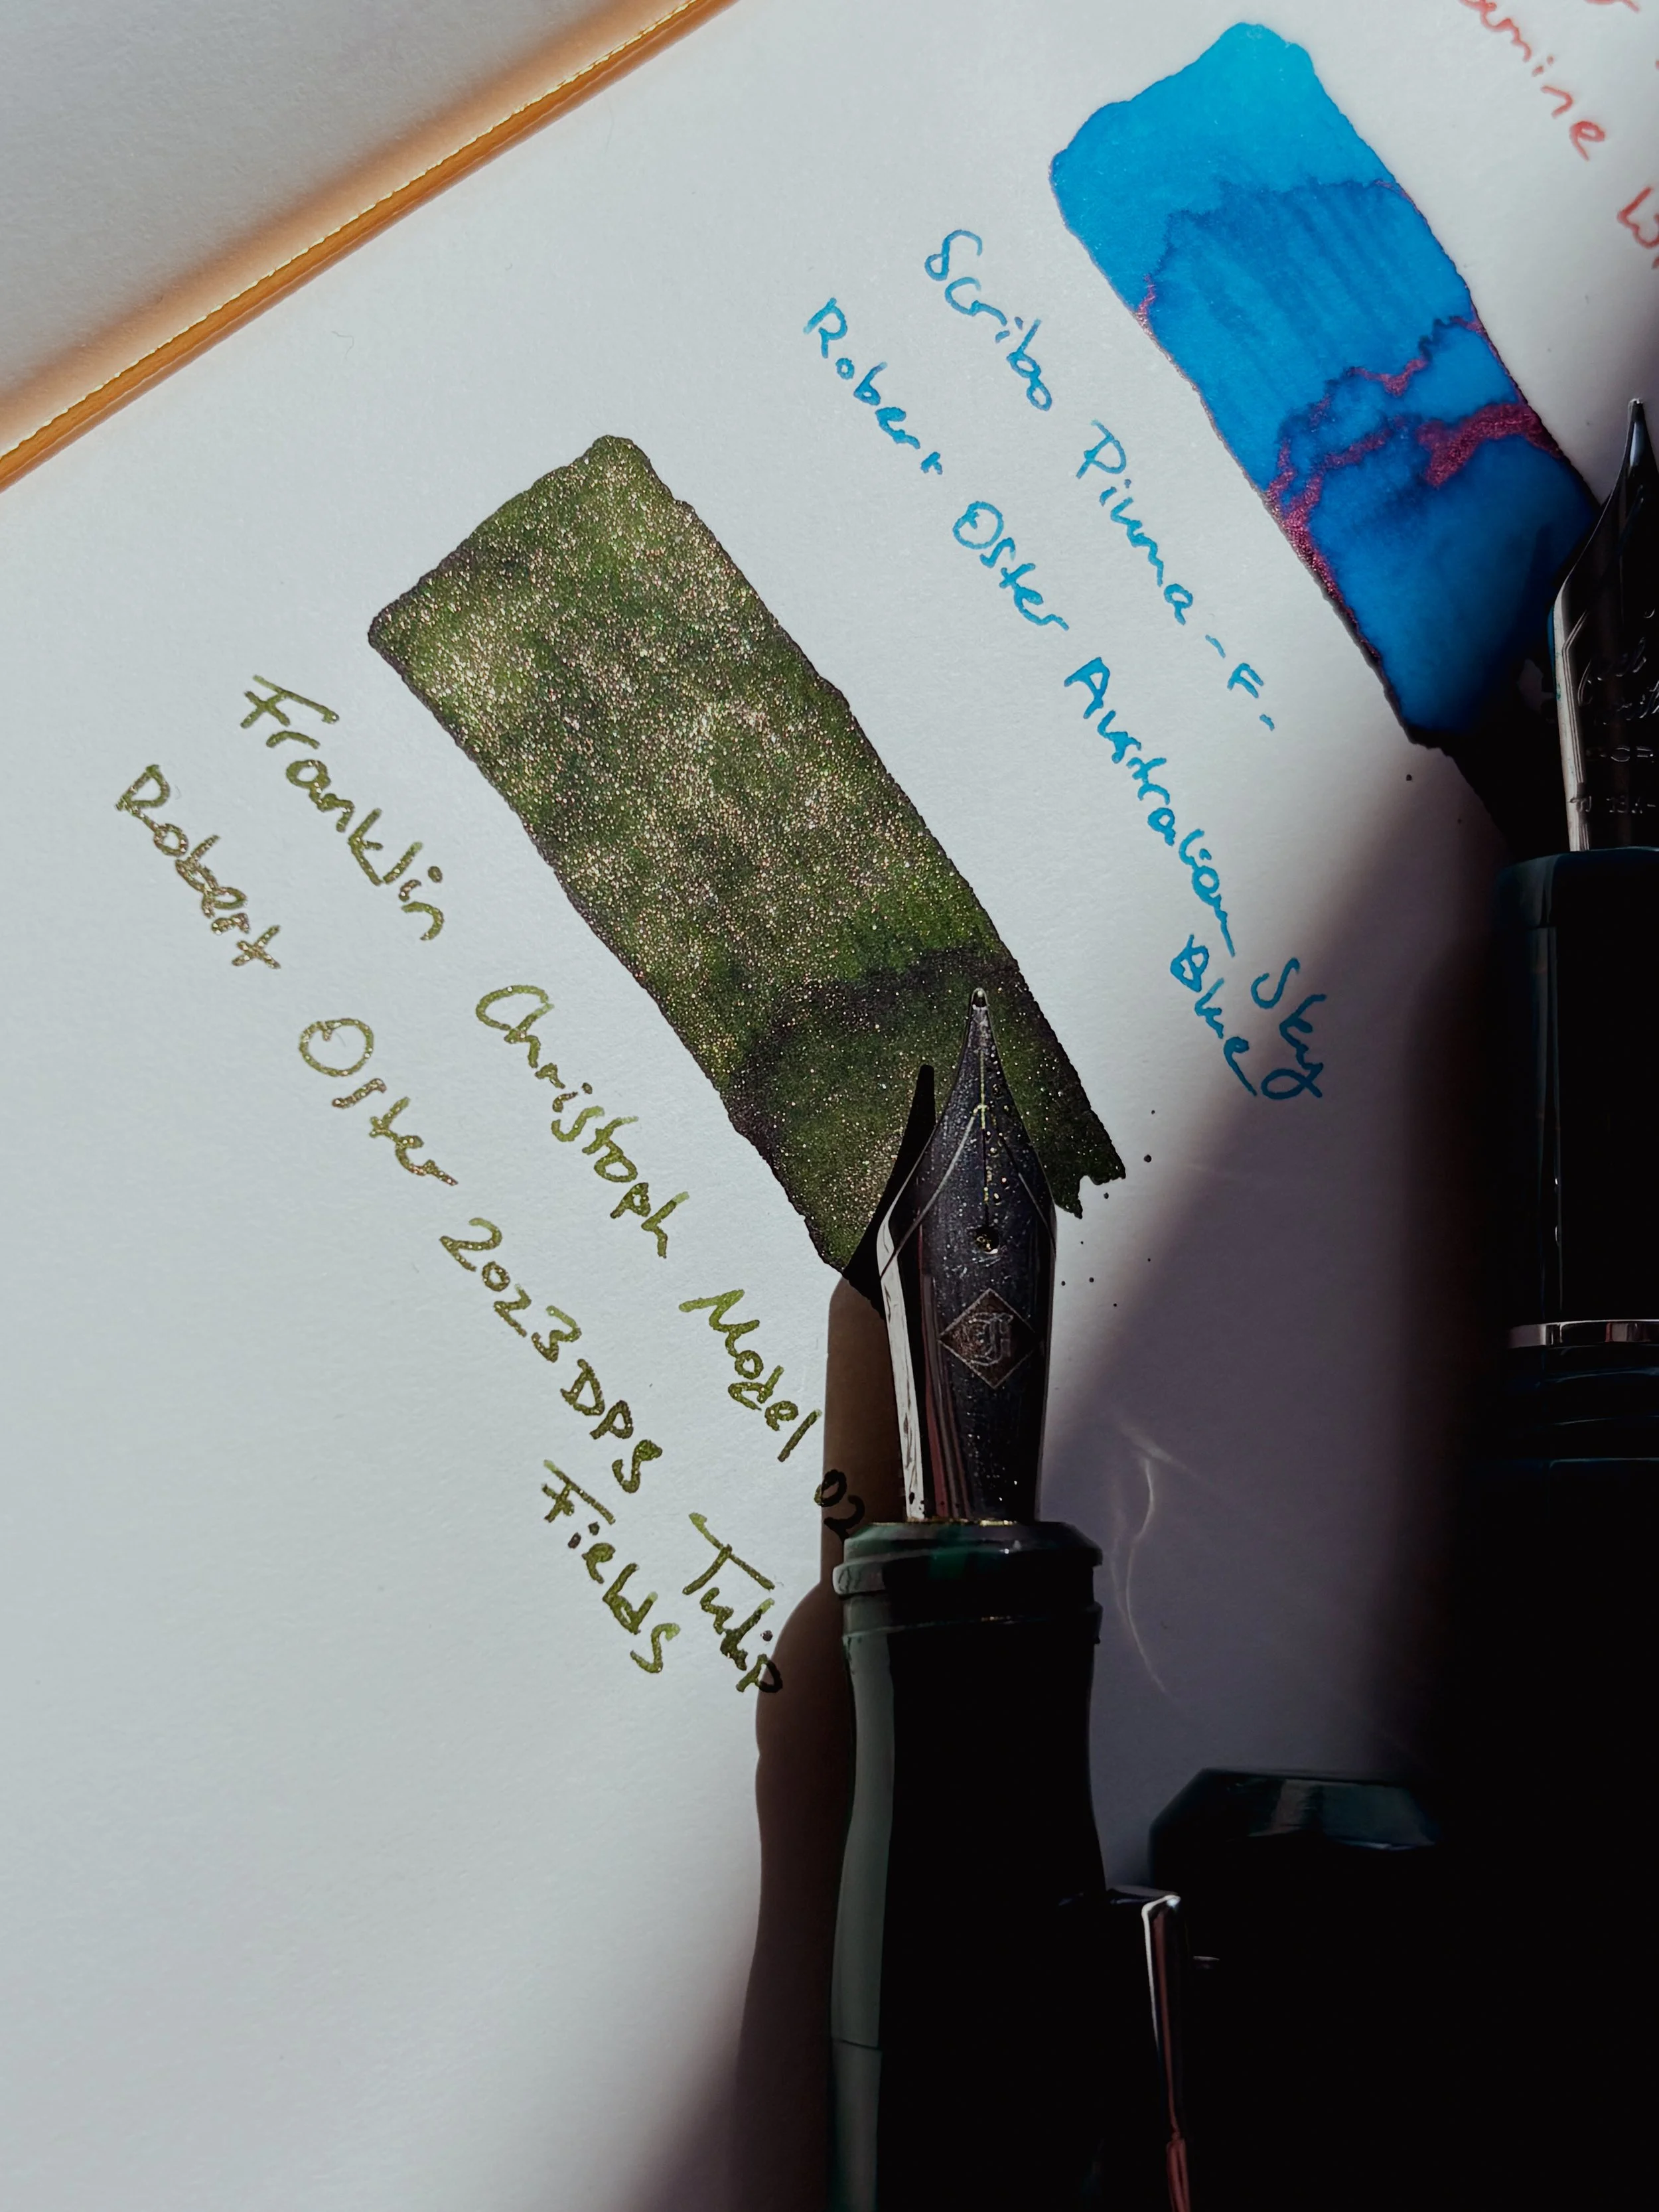 Scribo Piuma - F -
Robert Oster Australian Sky
Blue
Franklin Christoph Model 02
Robert Oster 2023 DPS Tulip
Fields